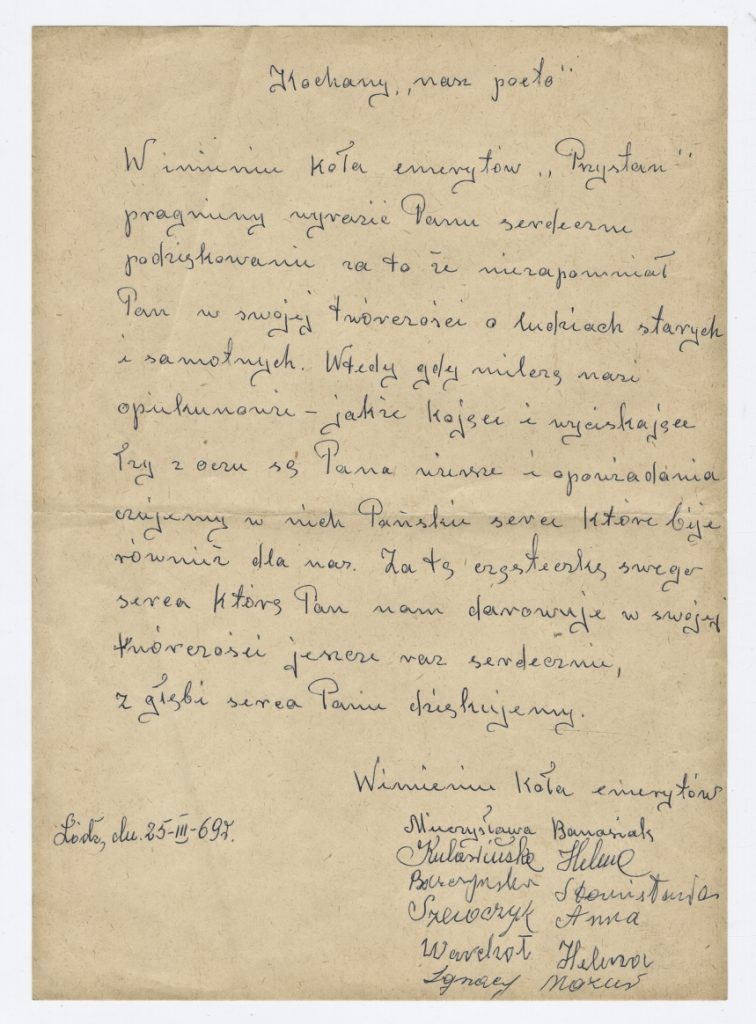 Kochany „nasz poeto"
W imieniu koła emerytów „Przystań"
pragniemy wyrazić Panu serdeczne
podziękowanie za to że niezapomniał
Pan w swojej twórczości o ludziach starych
i samotnych. Wtedy gdy milczą nasi
opiekunowie – jakże kojące i wyciskające
łzy z oczu są Pana wiersze i opowiadania
czujemy w nich Pańskie serce które bije
również dla nas. Za tę cząsteczkę swego
serca którą Pan nam darowuje w swojej
twórczości jeszcze raz serdecznie,
z głębi serca Panu dziękujemy.
W imieniu koła emerytów
Łódź, dn. 25-III-69r.
Mieczysława Banasiak
Helena
Stanisława
Szewczyk Anna
Warchoł Helena
Ignacy